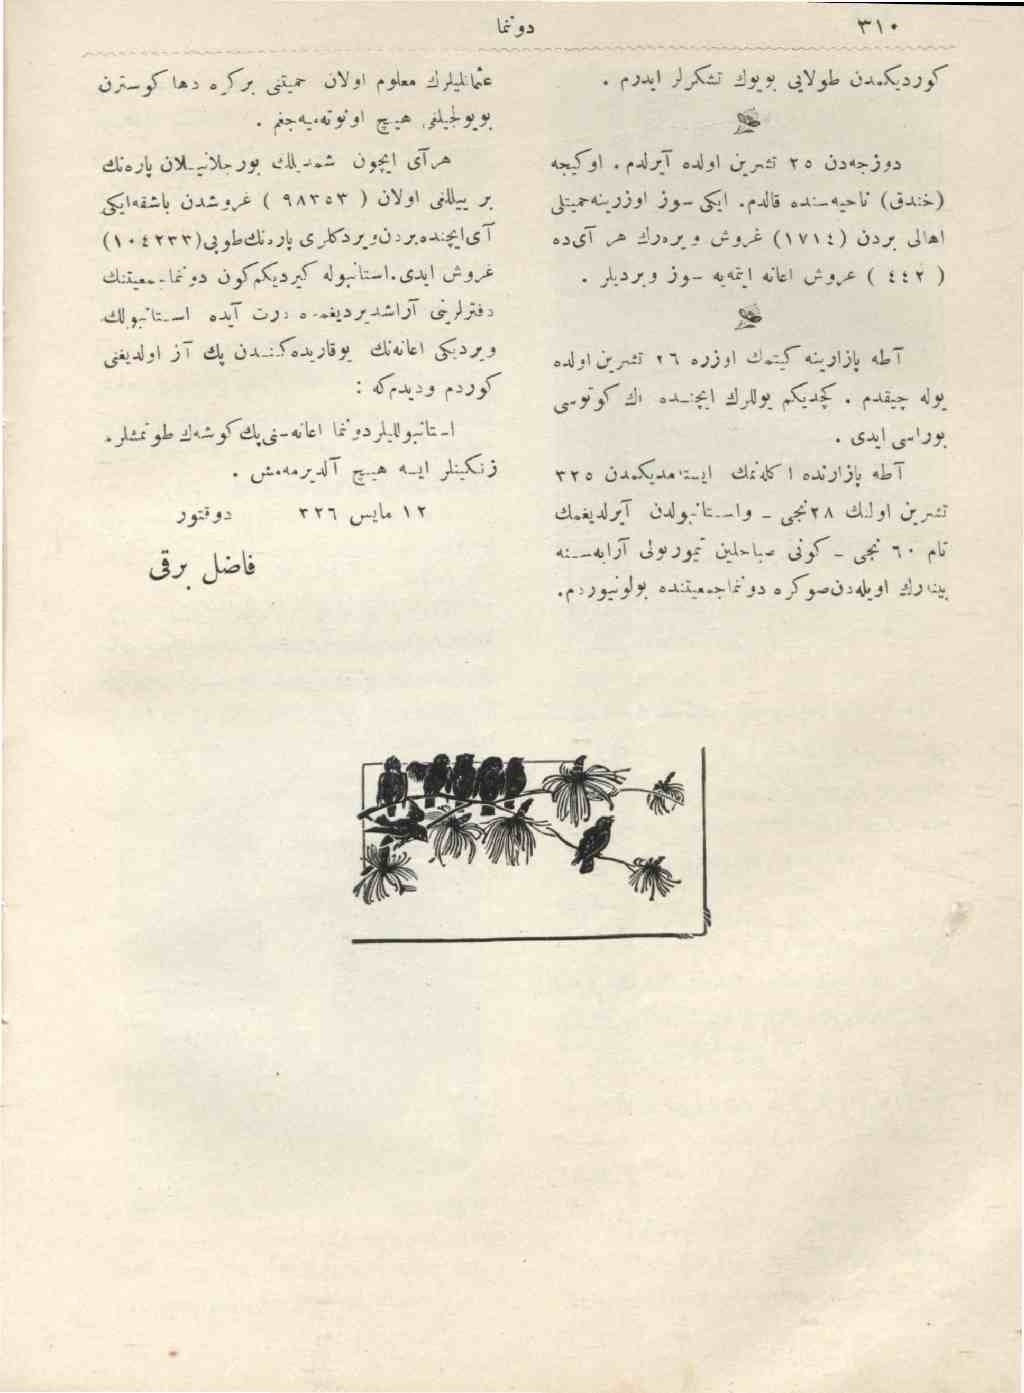 ٣١٠
دوننما
كوردیكمدن طولایی بویوك تشكرلر ایدرم .
دوزجه‌دن ٢٥ تشرین اولده آیرلدم. اوكیجه
(خندق) ناحیه‌سنده قالدم. ایكی سوز اوزرینه‌حمیتلی
اهالی بردن (١٧١٤) غروش ویره‌رك هر آی‌ده
( ٤٤٢ ) غروش اعانه ایتمه‌یه سوز ویردیلر .
آطه پازارینه كیتمك اوزره ٢٦ تشرین اولده
یوله چیقدم . كچدیكم یوللرك ایچنـده اك كوتوسی
بوراسی ایدی .
آطه پازارنده اكله‌نمك ایسته‌مدیكمدن ٣٢٥
تشرین اولك ٢٨نجی ـ واستانبولدن آیرلدیغمك
تام ٦٠ نجی ـ كونی صباحلین تیموریولی آرابه‌سنه
بینه‌رك اویله‌دن‌صوكره دوننماجمعیتنده بولونیوردم.
عثمانلیلرك معلوم اولان حمیتنی بركره دها كوسترن
بویولجیلغی هیـچ اونوته‌میه‌جغم .
هرآی ایچون شمدیلك بورجلانیـلان پاره‌نك
بر ییللغی اولان ( ٩٨٣٥٣ ) غروشدن باشقه‌ایكی
آی‌ایچنده‌بردن‌ویردكلری پاره‌نك‌طوپی(١٠٤٢٣٣)
غروش ایدی.استانبوله كیردیكم‌كون دوننماجمعیتنك
دفترلرینی آراشدیردیغمده درت آیده استانبولك
ویردیكی اعانه‌نك یوقاریده‌كـندن پك آز اولدیغنی
كوردم ودیدم‌كه :
استانبوللیلردوننما اعانه‌سنی‌پك‌كوشه‌ك طوتمشلر.
زنكینلر ایسه هیـچ آلدیرمه‌مش .
١٢ مایس ٣٢٦ دوقتور
فاضل برقی